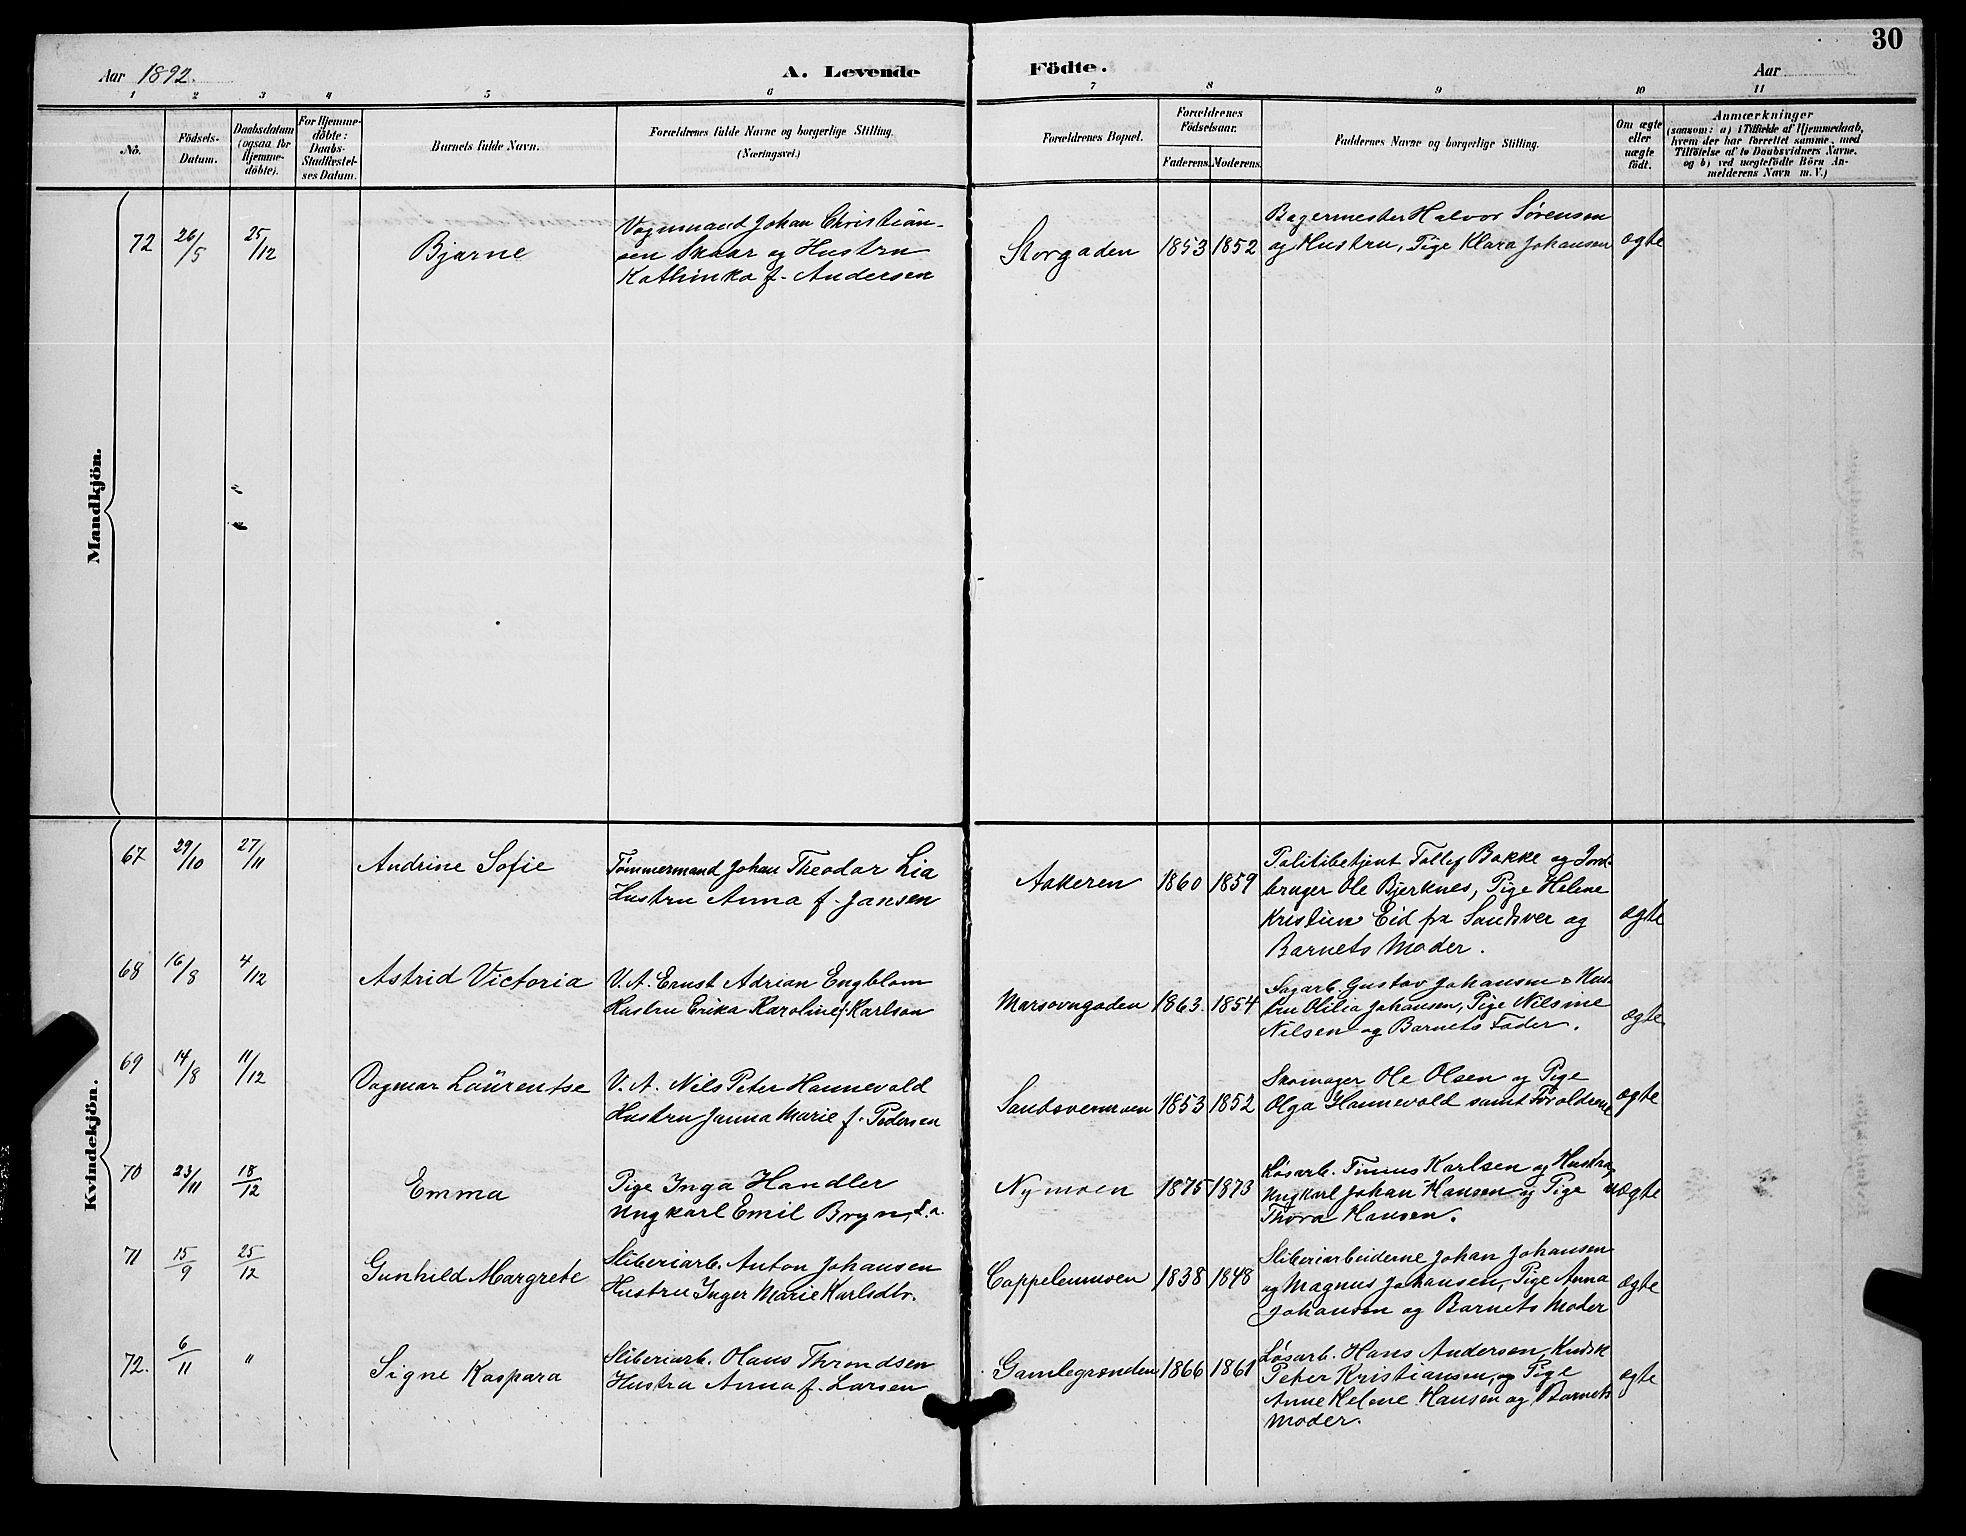 30
Aar 1892. A. Levende Födte. Aar
1 2 3 4 5 6 7 8 9 10 11
No. Födsels-Datum. Daabsdatum (ogsaa for Hjemme-döbte). For Hjemme-döbte: Daabs-Stadfæstel-ses Datum. Barnets fulde Navn. Forældrenes fulde Navne og borgerlige Stilling. (Næringsvei.) Forældrenes Bopæl. Forældrenes Födselsaar. Faderens. Moderens. Faddernes Navne og borgerlige Stilling. Om ægte eller uægte födt. Anmærkninger (saasom: a) i Tilfælde af Hjemmedaab, hvem der har forrettet samme, med Tilföielse af to Daabsvidners Navne. og b) ved uægtefödte Börn An-melderens Navn m. V.)
Mandkjön.
72 26/5 25/12 Bjarne
Vognmand Johan Christian-
sen Skaar og Hustru
Kathinka f. Andersen
Storgaden 1853 1852
Bagermester Halvor Sørensen
og Hustru, Pige Klara Johansen ægte
Kvindekjön.
67 29/10 27/11 Andrine Sofie
Tømmermand Johan Theodor Lia
Hustru Anna f. Jansen
Aakeren 1860 1859
Politibetjent Tollef Bakke og Jord-
bruger Ole Bjerknes, Pige Helene
Kristine Eid fra Sandsver og
Barnets Moder. ægte
68 16/8 4/12 Astrid Victoria
V. A. Ernst Adrian Engblom
Hustru Erika Karoline f. Karlson
Marsovngaden 1863. 1854
Sagarb. Gustav Johansen & Hus-
tru Otilia Johansen, Pige Nilsine
Nilsen og Barnets Fader. ægte
69 14/8 11/12 Dagmar Laurentse
V. A. Nils Peter Hannevold
Hustru Janna Marie f. Pedersen
Sandsvermoen 1853 1852
Skomager Ole Olsen og Pige
Olga Hannevold samt Forældrene ægte
70 23/11 18/12 Emma
Pige Inga Handler
Ungkarl Emil Bryn, S.a.
Nymoen 1875 1873
Løsarb. Timus Karlsen og Hustru,
Ungkarl Johan Hansen og Pige
Thora Hansen. uægte
71 15/9 25/12 Gunhild Margrete
Sliberiarb. Anton Johansen
Hustru Inger Marie Karlsdtr.
Cappelenmoen 1838 1848
Sliberiarbeiderne Johan Johansen
og Magnus Johansen, Pige Anna
Johansen og Barnets Moder ægte
72. 6/11 " Signe Kaspara
Sliberiarb. Olaus Throndsen
Hustru Anna f. Larsen
Gamlegrønden 1866 1861
Løsarb. Hans Andersen, Kudsk
Peter Kristiansen, og Pige
Anne Helene Hansen og Barnets
Moder. ægte